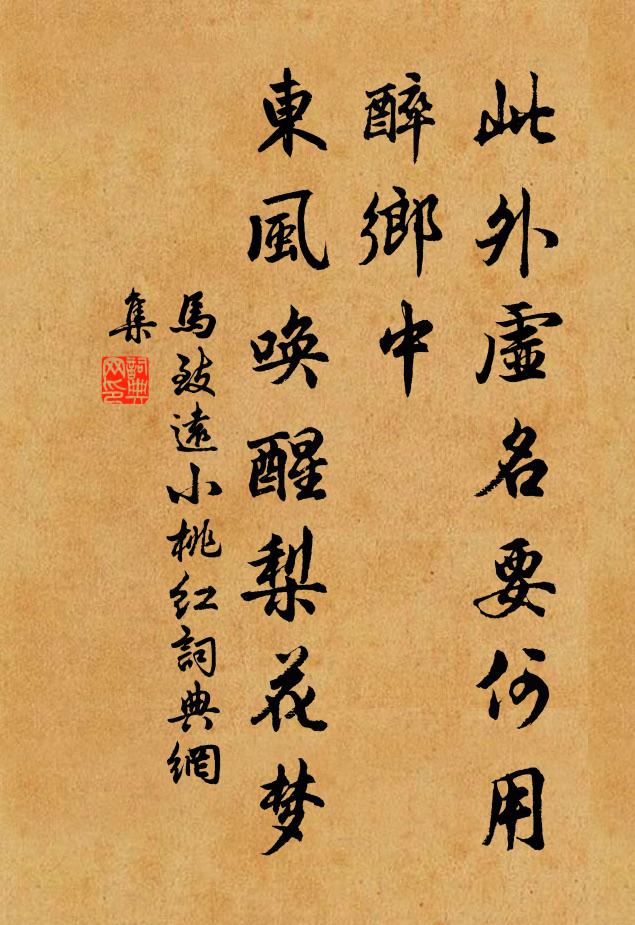 此外虛名要何用
醉鄉中
東風喚醒梨花梦
馬致遠小桃红詞典網
集
詞典网印